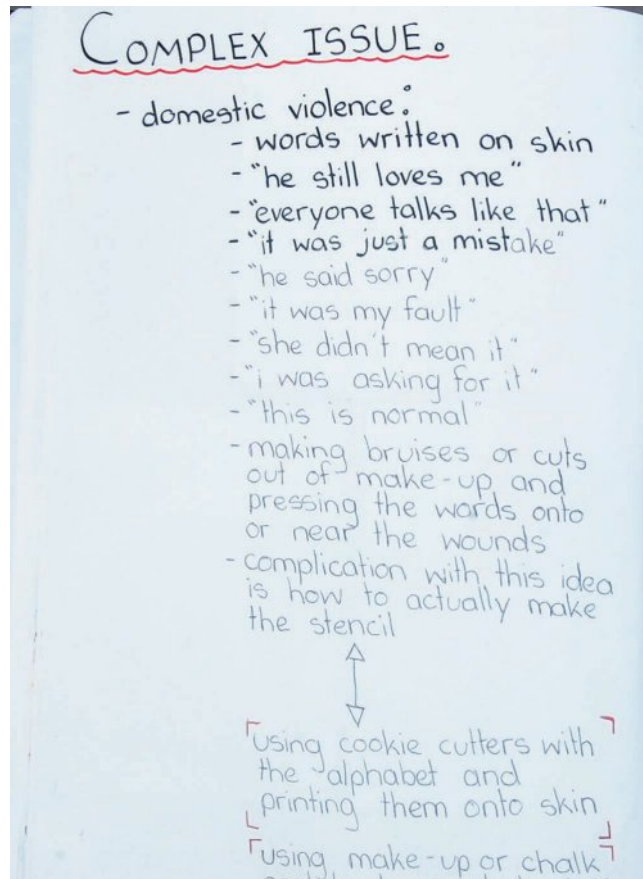 COMPLEX ISSUE.
- domestic violence:
- words written on skin
- "he still loves me"
- "everyone talks like that"
- "it was just a mistake"
- "he said sorry"
- "it was my fault"
- "she didn't mean it"
- "i was asking for it"
- "this is normal"
- making bruises or cuts
out of make-up and
pressing the words onto
or near the wounds
- complication with this idea
is how to actually make
the stencil
using cookie cutters with
the alphabet and
printing them onto skin
using make-up or chalk